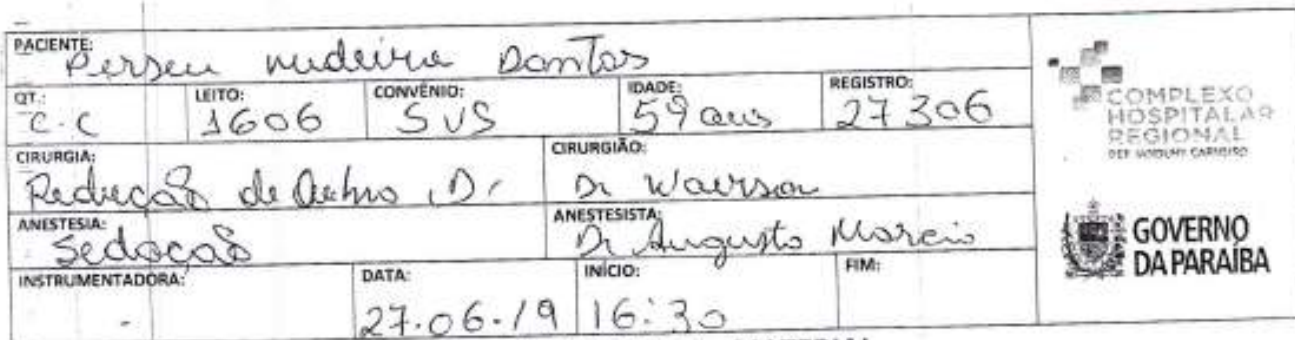 PACIENTE: Perseu Medeiros Dantas
QT.: C.C LEITO: 1606 CONVÊNIO: SUS IDADE: 59 anos REGISTRO: 27306
CIRURGIA: Redução de D. CIRURGIÃO: Dr
ANESTESIA: Sedação ANESTESISTA: Dr Augusto Marcio
INSTRUMENTADORA: - DATA: 27.06.19 INÍCIO: 16:30 FIM:
COMPLEXO
HOSPITALAR
REGIONAL
GOVERNO
DA PARAÍBA